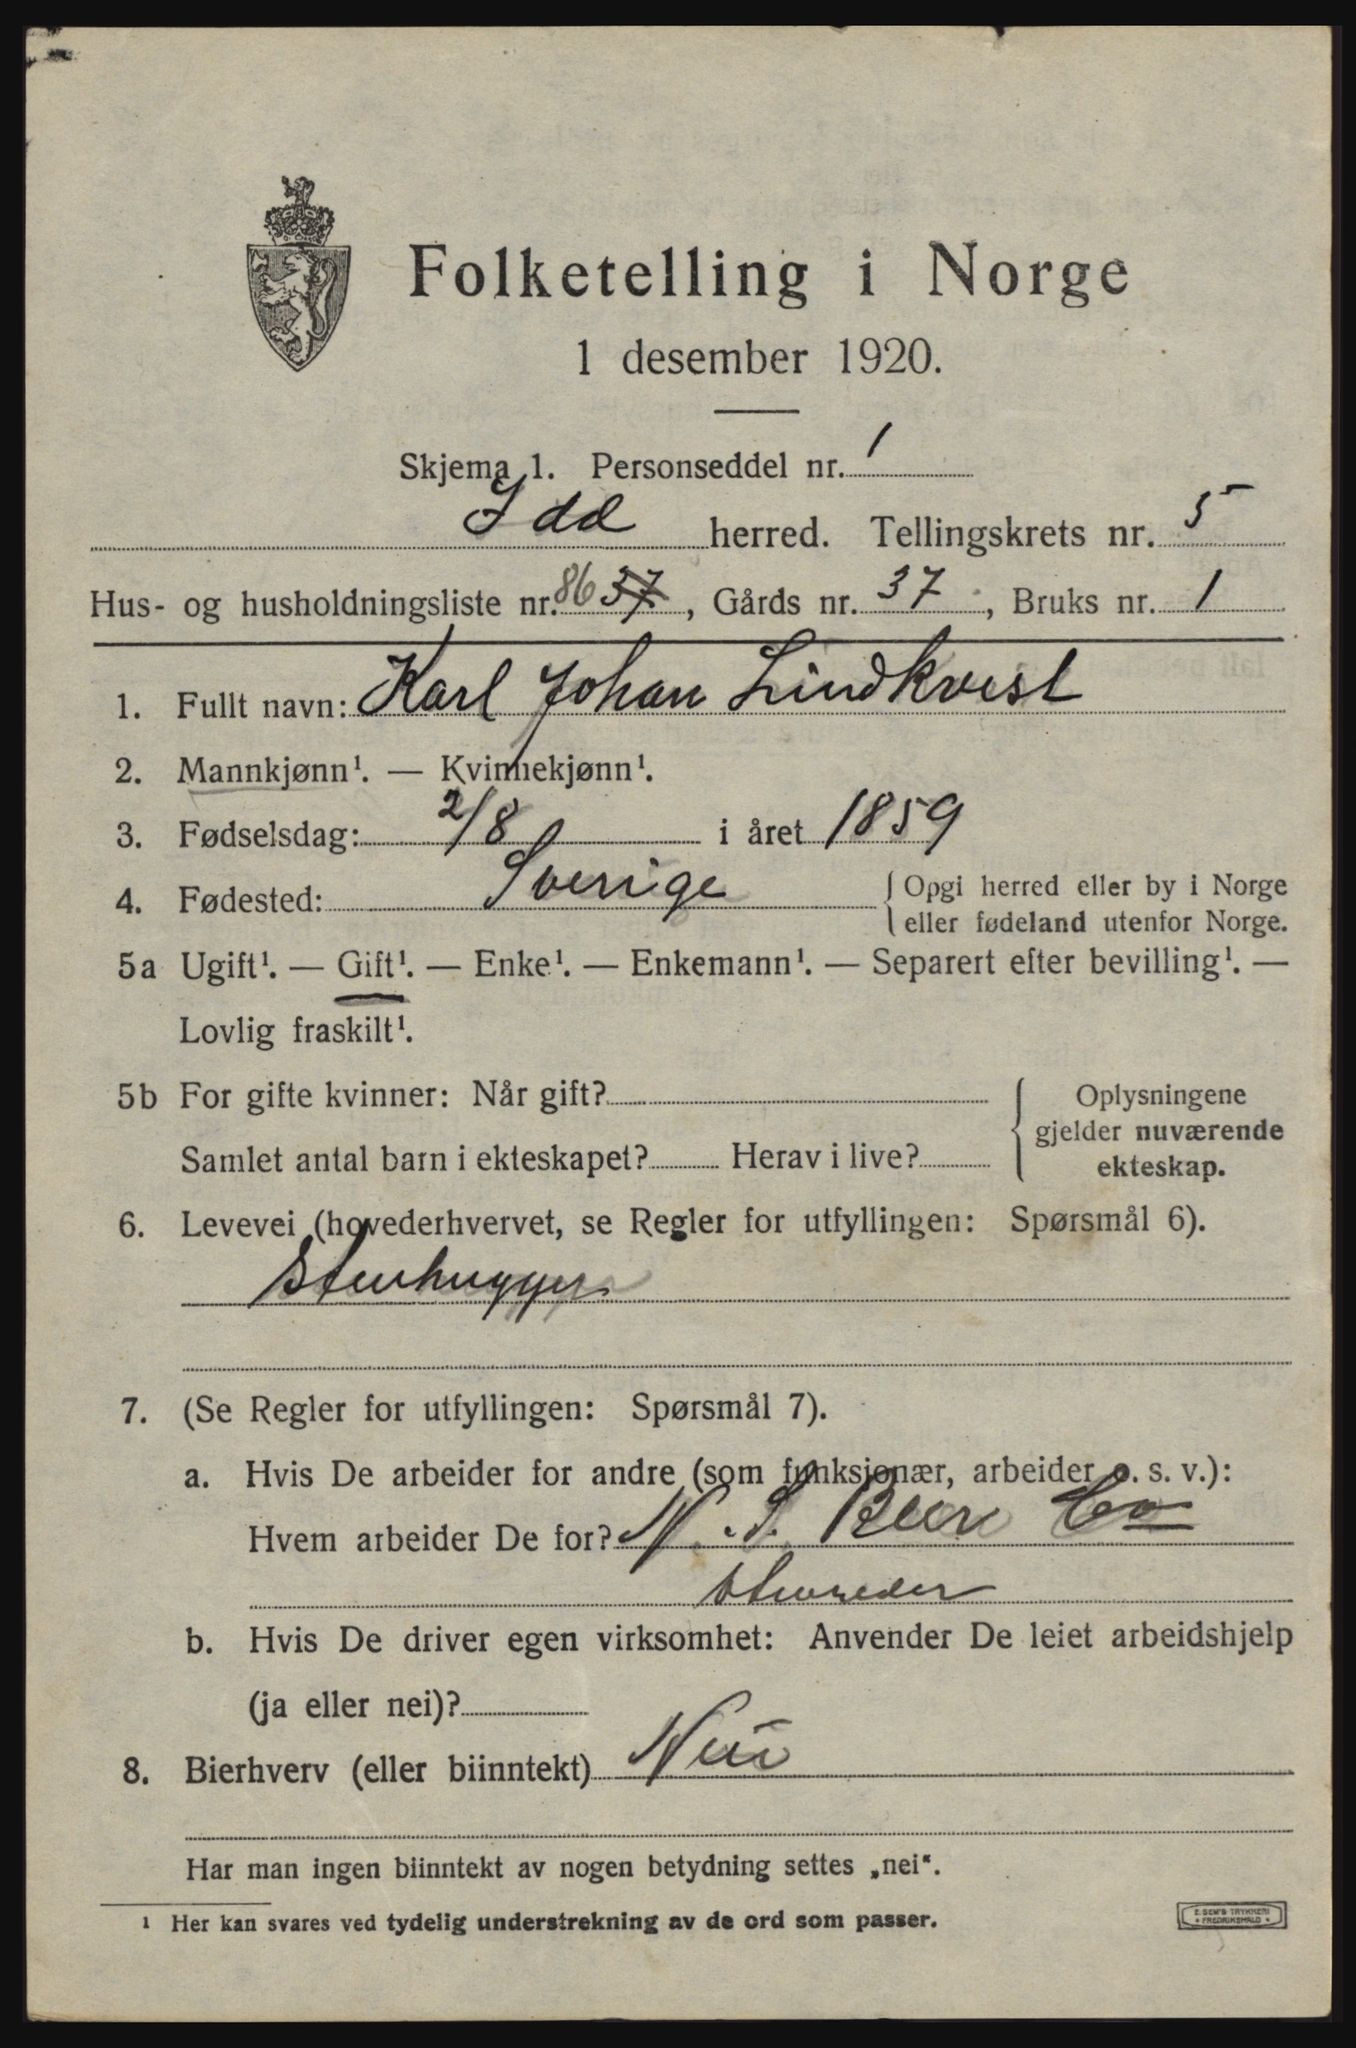 Folketelling i Norge
1 desember 1920.
Skjema 1. Personseddel nr. 1
Idd herred. Tellingskrets nr. 5
Hus- og husholdningsliste nr. 86 37, Gårds nr. 37, Bruks nr. 1
1. Fullt navn: Karl Johan Lindkvist
2. Mannkjønn¹. — Kvinnekjønn¹.
3. Fødselsdag: 2/8 i året 1859
4. Fødested: Sverige { Opgi herred eller by i Norge
eller fødeland utenfor Norge.
5a Ugift¹. — Gift¹. — Enke¹. — Enkemann¹. — Separert efter bevilling¹. —
Lovlig fraskilt¹.
5b For gifte kvinner: Når gift?
Samlet antal barn i ekteskapet? Herav i live?
{ Oplysningene
gjelder nuværende
ekteskap.
6. Levevei (hovederhvervet, se Regler for utfyllingen: Spørsmål 6).
Stenhugger
7. (Se Regler for utfyllingen: Spørsmål 7).
a. Hvis De arbeider for andre (som funksjonær, arbeider o. s. v.):
Hvem arbeider De for? N. S. Beer Co
b. Hvis De driver egen virksomhet: Anvender De leiet arbeidshjelp
(ja eller nei)?
8. Bierhverv (eller biinntekt) Nei
Har man ingen biinntekt av nogen betydning settes „nei“.
¹ Her kan svares ved tydelig understrekning av de ord som passer.
E. SEM'S TRYKKERI
• FREDRIKSHALD •